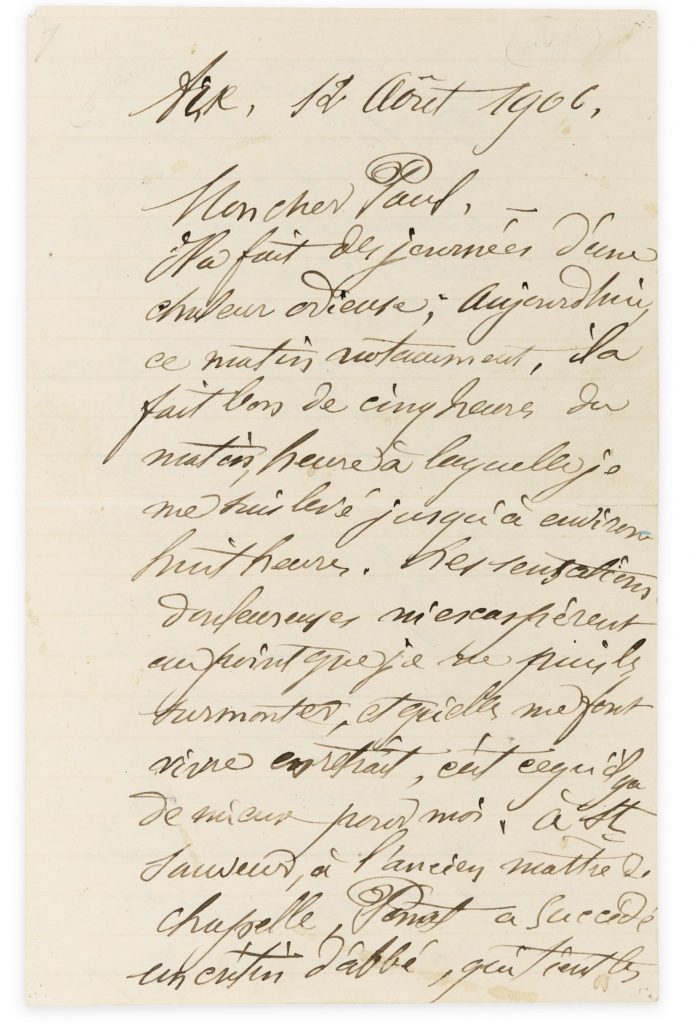 Aix, 12 Août 1906,
Mon cher Paul, —
Il a fait des journées d'une
chaleur odieuse; Aujourdhui,
ce matin notamment, il a
fait bon de cinq heures du
matin, heure à laquelle je
me suis levé jusqu'à environ
huit heures. Les sensations
douloureuses m'exaspèrent
au point que je ne puis les
surmonter, et qu'elles me font
vivre en retrait, c'est ce qu'il y a
de mieux pour moi. à St
Sauveur, à l'ancien maître de
chapelle, Poncet a succédé
un crétin d'abbé, qui tient les